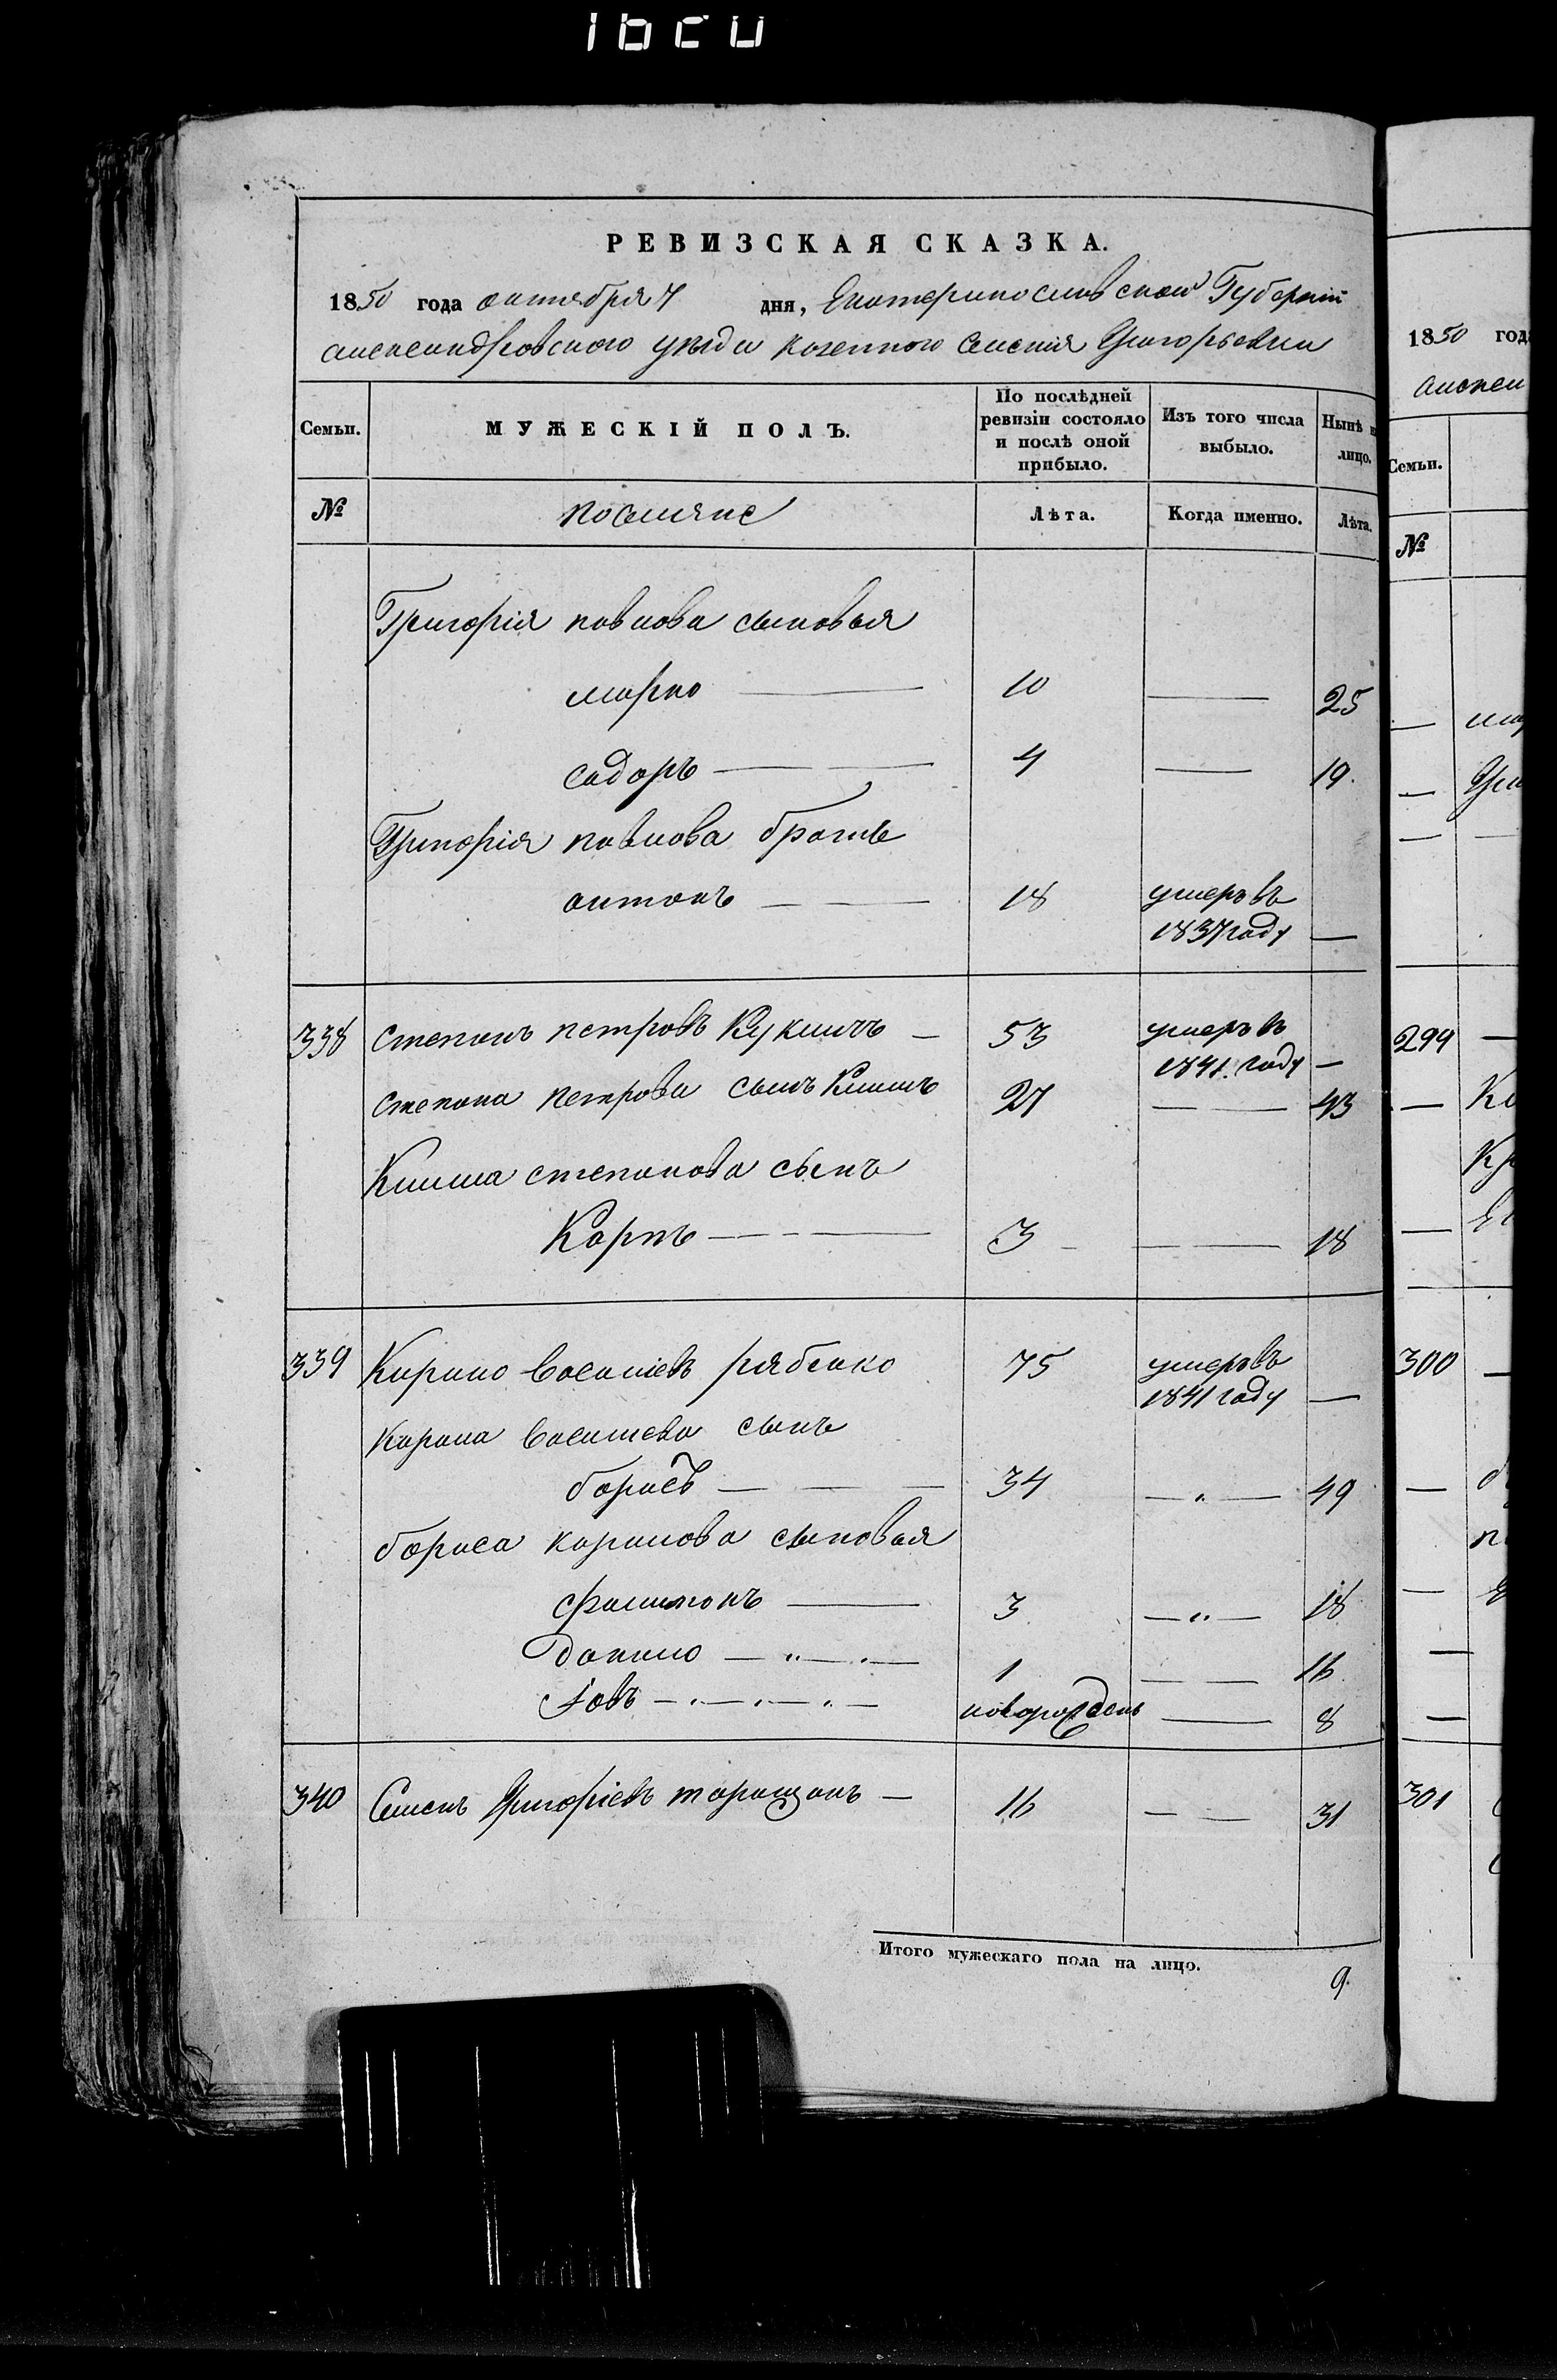 РЕВИЗСКАЯ СКАЗКА.
1850 года октября 7 дня, Екатеринославской Губерніи
александровского уезда казенного селенія Григорьевки
Семьи. МУЖЕСКІЙ ПОЛЪ. По послѣдней ревизіи состояло и послѣ оной прибыло. Изъ того числа выбыло. Нынѣ н лицо.
№ поселяне Лѣта. Когда именно. Лѣта.
Григорія павлова сыновья
марко 10 25
сидоръ 4 19.
Григорія павлова братъ
антонъ 18 умеръ въ
1837 году
338 степанъ петровъ Кукишъ 53 умеръ въ
1841. году
степана петрова сынъ Климъ 27 43
Клима степанова сынъ
Карпъ 3 18
339 Кирило василіевъ рябенко 75 умеръ въ
1841 году
Кирила василиева сынъ
борисъ 34 49
бориса кирилова сыновья
филимонъ 3 18
данило 1 16
Іовъ новорожденъ 8
340 Семенъ Григоріевъ таращанъ 16 31
Итого мужескаго пола на лицо. 9.
1850 год
алексан
Семьи.
№
299
300
301